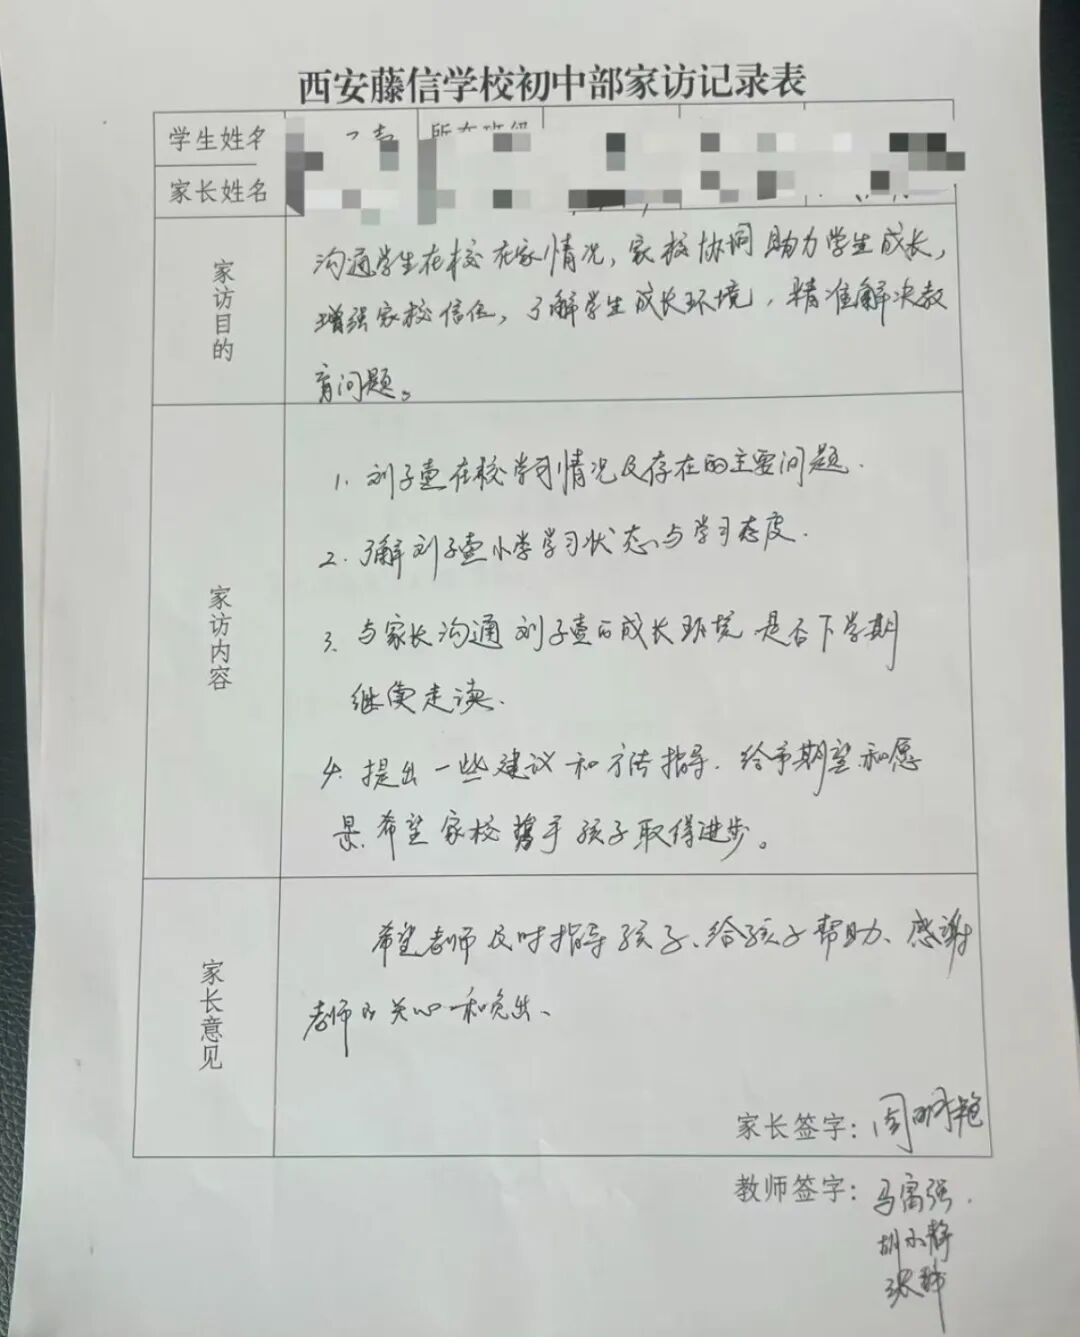 西安藤信学校初中部家访记录表
学生姓名
家长姓名
家访目的
沟通学生在校在家情况，家校协同助力学生成长，
增强家校信任，了解学生成长环境，精准解决教
育问题。
家访内容
1. 刘子壹在校学习情况及存在的主要问题.
2. 了解刘子壹小学学习状态与学习态度.
3. 与家长沟通刘子壹的成长环境 是否下学期
继续走读.
4. 提出一些建议和方法指导. 给予期望和愿
景.希望家校携手孩子取得进步。
家长意见
希望老师及时指导孩子、给孩子帮助、感谢
老师的关心和
家长签字：周
教师签字：马富强.
胡小静
张